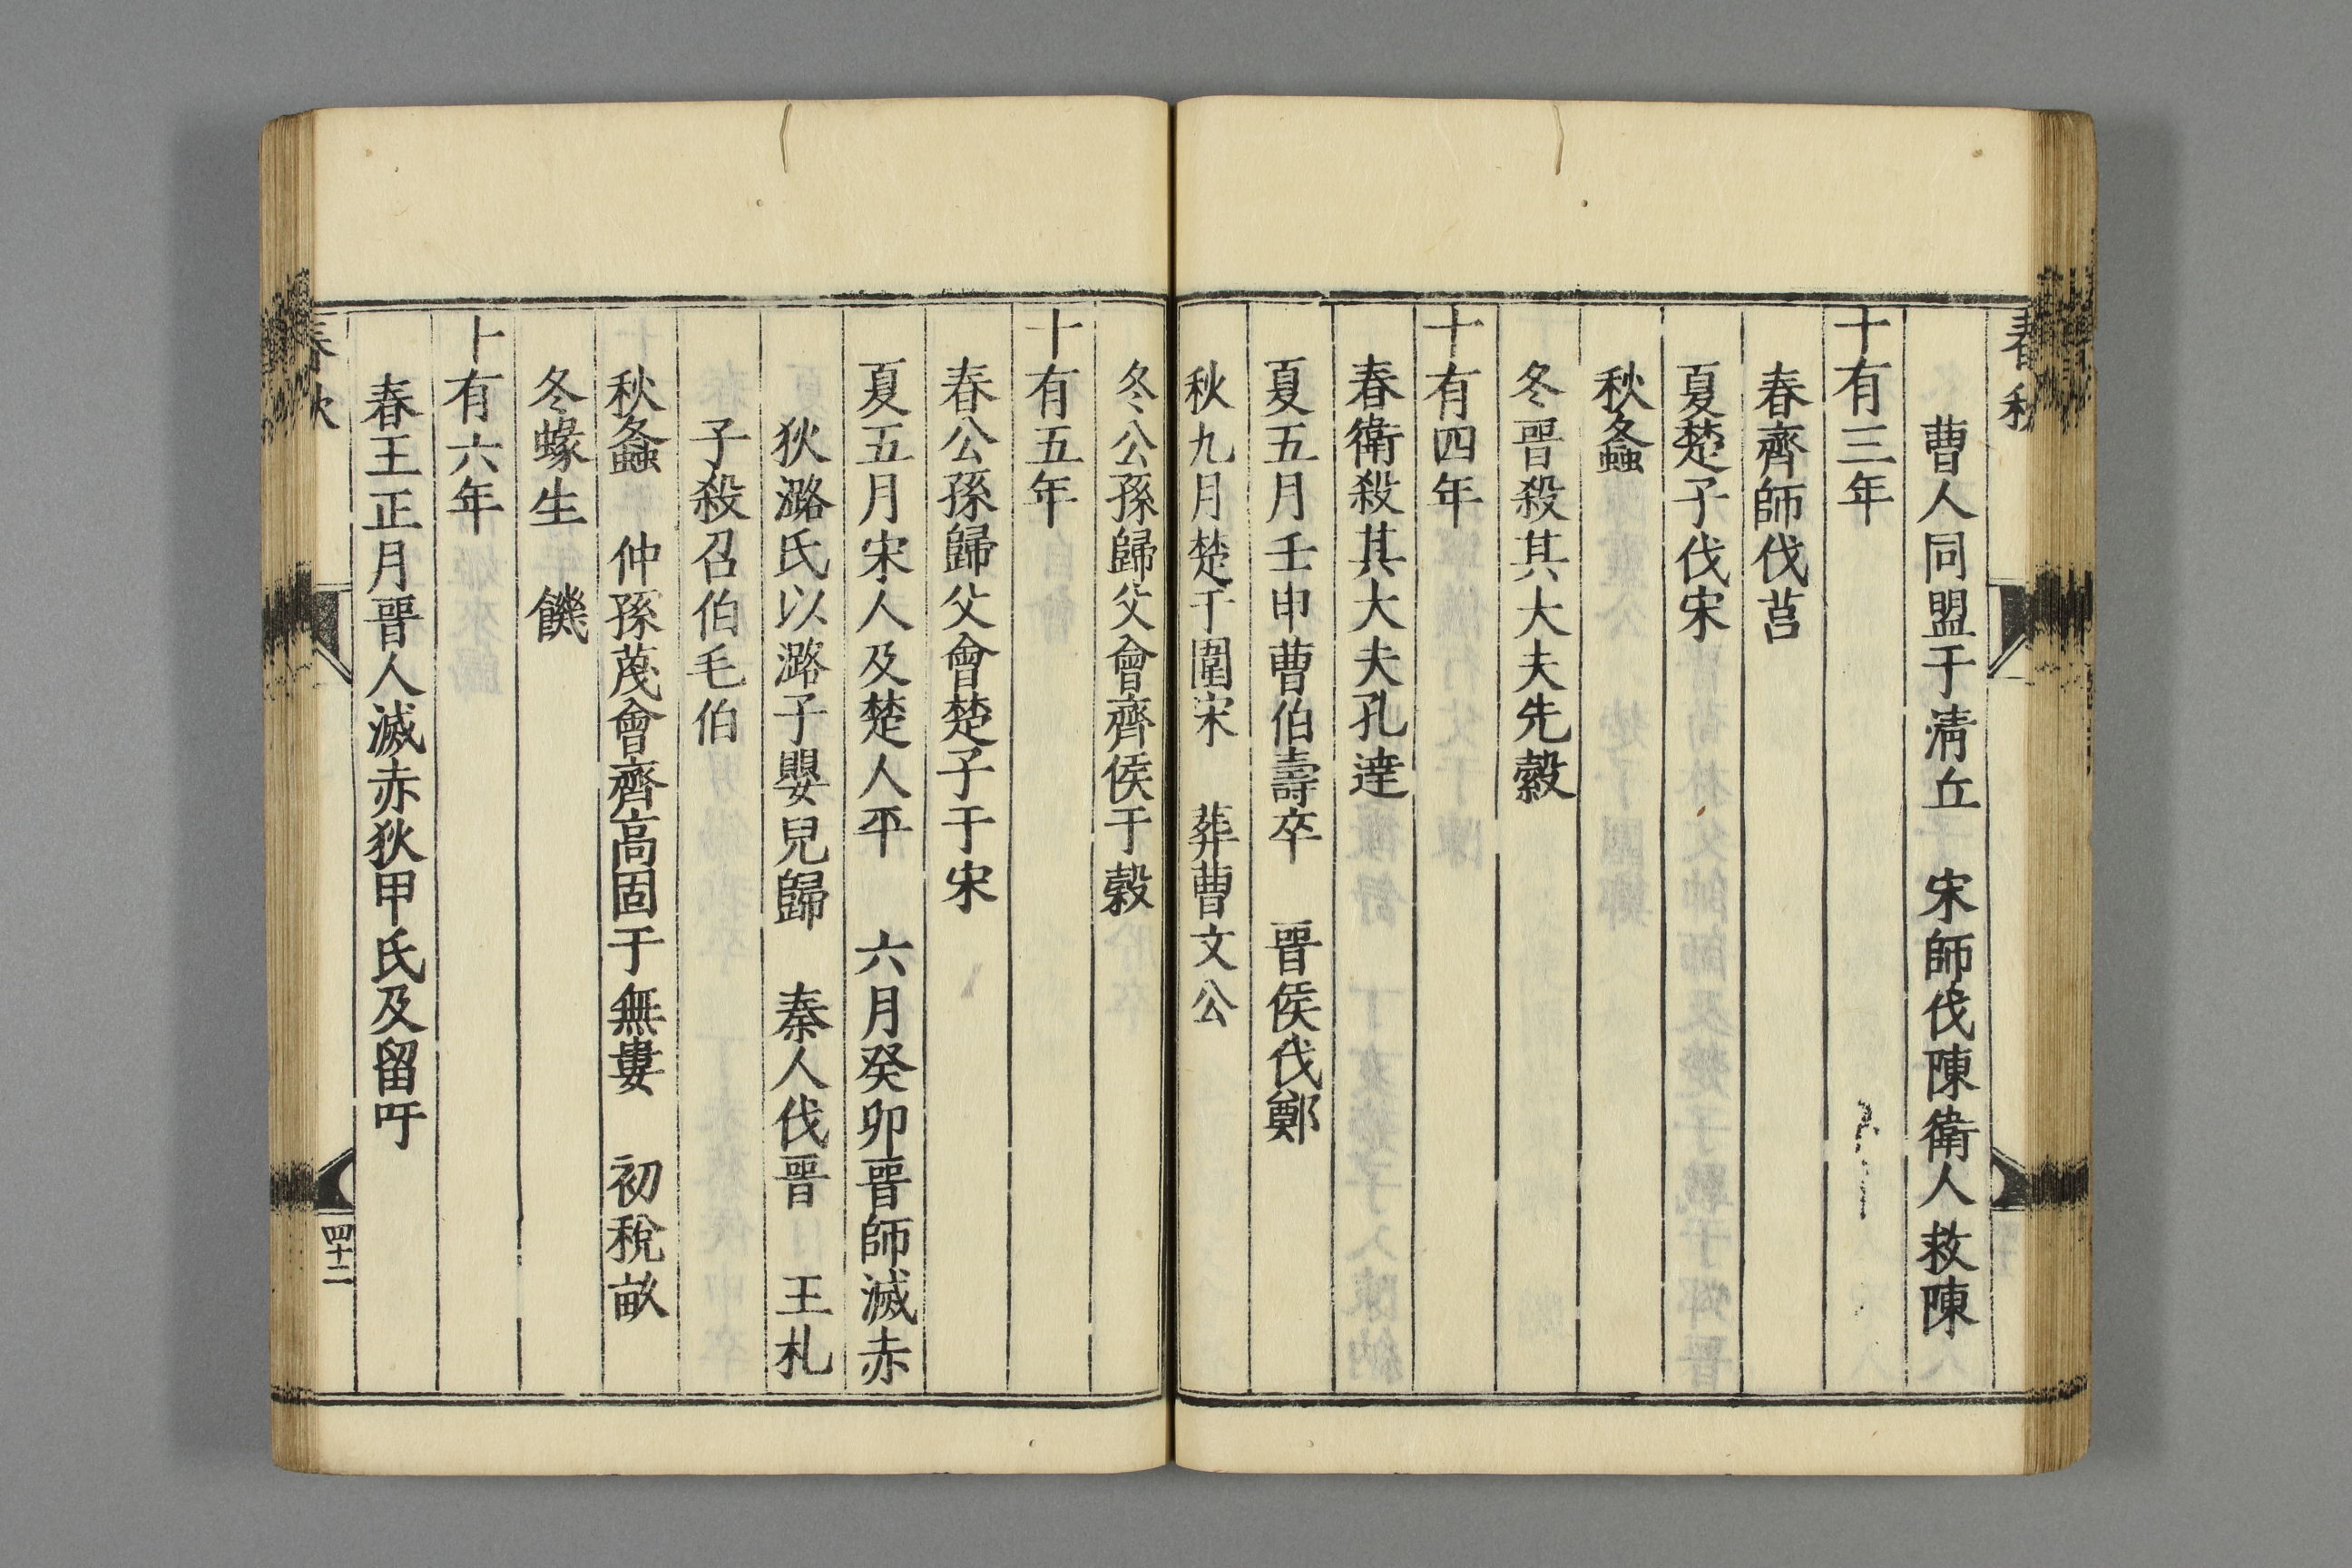 春秋
曹人同盟于淸丘　宋師伐陳衛人救陳
十有三年
春齊師伐莒
夏楚子伐宋
秋螽
冬晉殺其大夫先縠
十有四年
春衛殺其大夫孔達
夏五月壬申曹伯壽卒　晉侯伐鄭
秋九月楚子圍宋　葬曹文公
冬公孫歸父會齊侯于穀
十有五年
春公孫歸父會楚子于宋
夏五月宋人及楚人平　六月癸卯晉師滅赤
狄潞氏以潞子嬰兒歸　秦人伐晉　王札
子殺召伯毛伯
秋螽　仲孫蔑會齊高固于無婁　初稅畝
冬蝝生　饑
十有六年
春王正月晉人滅赤狄甲氏及留吁
春秋　四十二